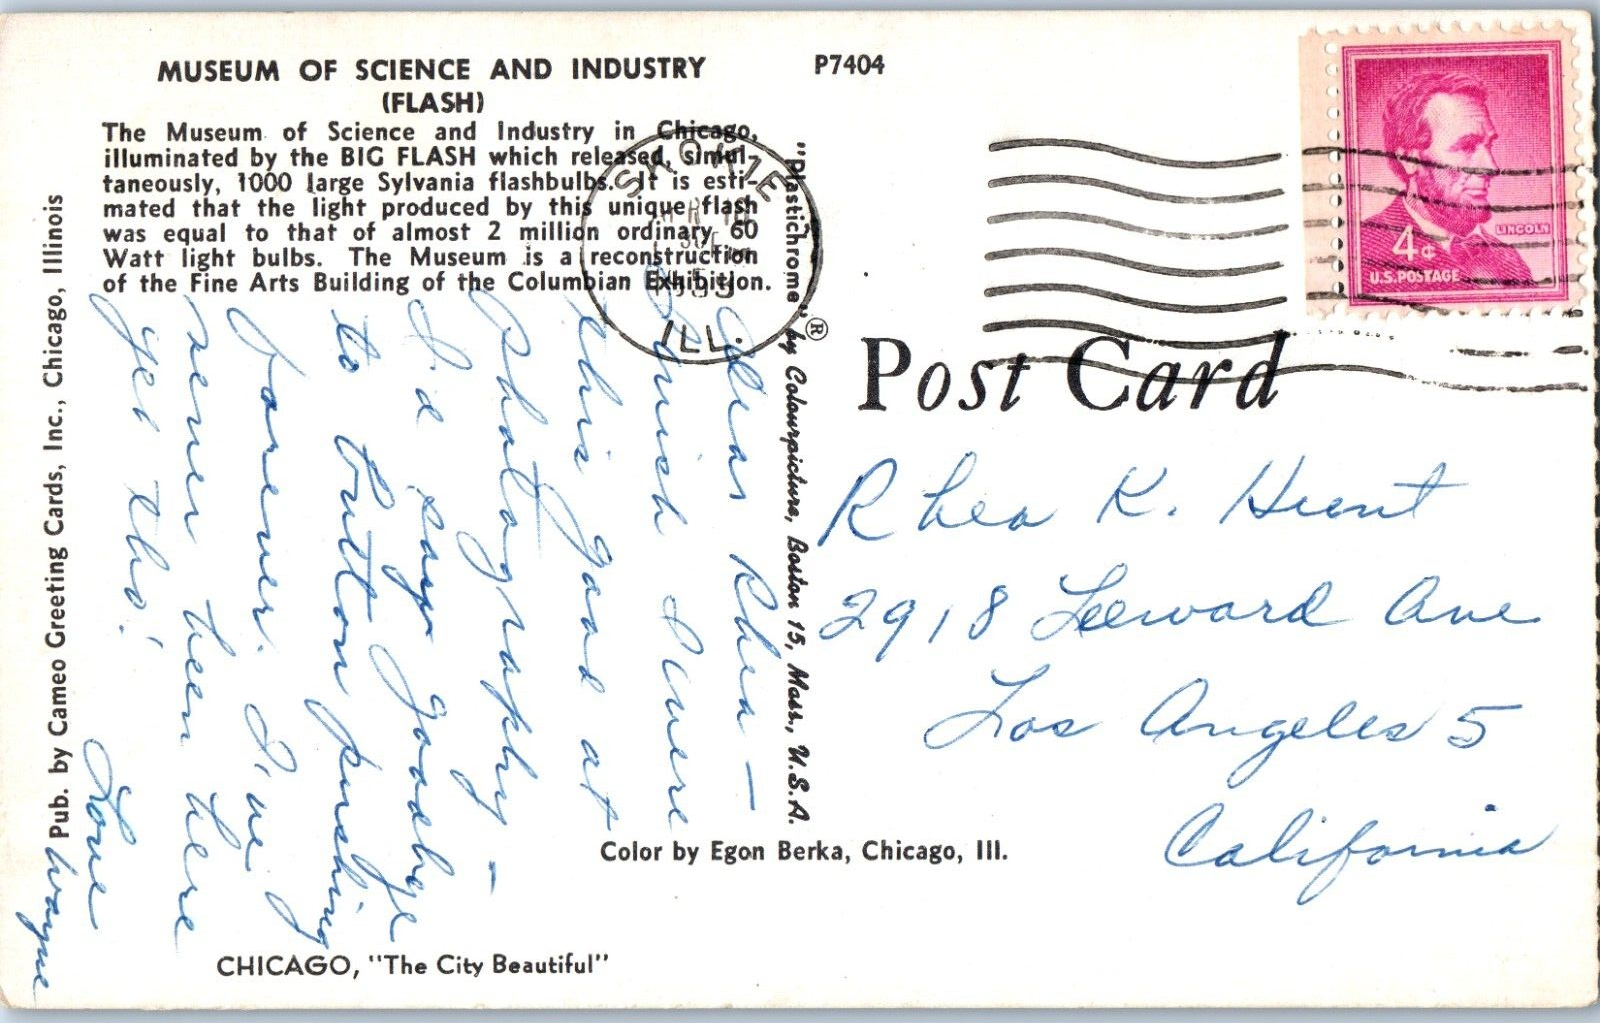 MUSEUM OF SCIENCE AND INDUSTRY
(FLASH)
The Museum of Science and Industry in Chicago,
illuminated by the BIG FLASH which released, simul-
taneously, 1000 large Sylvania flashbulbs. It is esti-
mated that the light produced by this unique flash
was equal to that of almost 2 million ordinary 60
Watt light bulbs. The Museum is a reconstruction
of the Fine Arts Building of the Columbian Exhibition.
P7404
Pub. by Cameo Greeting Cards, Inc., Chicago, Illinois
"Plastichrome"® by Colourpicture, Boston 15, Mass., U.S.A.
SKOKIE
1959
ILL.
LINCOLN
4¢
U.S. POSTAGE
Post Card
Dear Rhea —
Wish I were
this good at
Photography —
I'd say goodbye
to button pushing
forever. I've
never been here
yet tho!
Love
Wayne
Rhea K. Hunt
2918 Leeward Ave
Los Angeles 5
California
Color by Egon Berka, Chicago, Ill.
CHICAGO, "The City Beautiful"